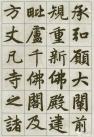 承和願大闡前
規重新佛殿建
毗盧千佛閣及
方丈凡寺之諸